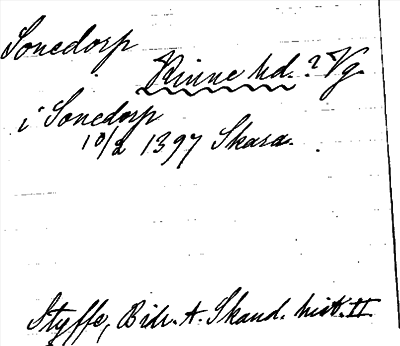 Sonedorp
Kinne hd. ? Vg.
i Sonedorp
10/2 1397 Skara.
Styffe, Bidr. t. Skand. hist. II